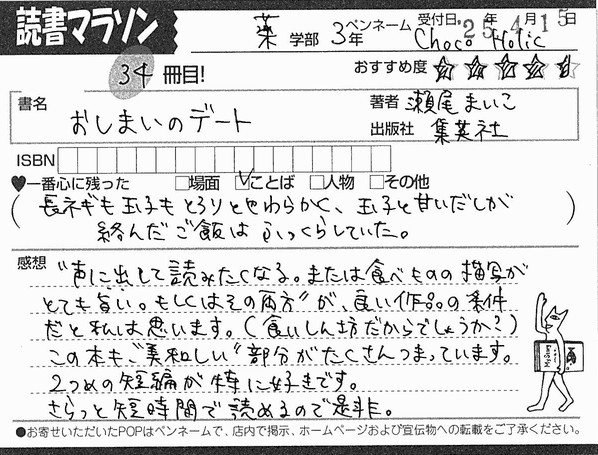 読書マラソン
薬 学部 3年 ペンネーム Choco Holic 受付日 '25年 4月15日
34 冊目! おすすめ度 ☆☆☆☆☆
書名 おしまいのデート 著者 瀬尾まいこ
出版社 集英社
ISBN
♥一番心に残った □場面 ☑ことば □人物 □その他
(長ネギも玉子もとろりとやわらかく、玉子と甘いだしが
絡んだご飯はふっくらしていた。)
感想 "声に出して読みたくなる。または食べものの描写が
とても旨い。もしくはその両方"が、良い作品の条件
だと私は思います。(食いしん坊だからでしょうか?)
この本も、"美和しい"部分がたくさんつまっています。
2つめの短編が特に好きです。
さらっと短時間で読めるので是非。
●お寄せいただいたPOPはペンネームで、店内で掲示、ホームページおよび宣伝物への転載をご了承ください。